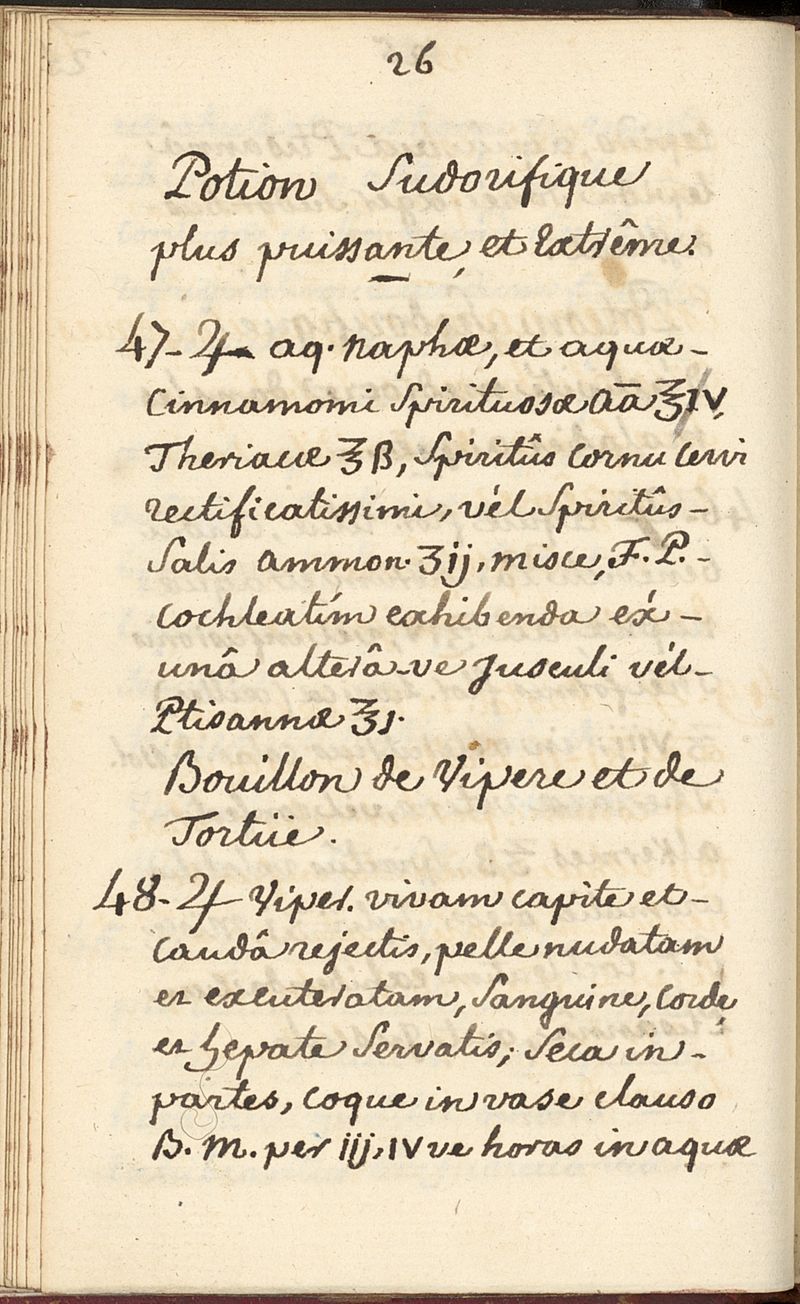 26
Potion Sudorifique
plus puissante, et Extrême.
47-♃ aq. Naphæ, et aquæ-
Cinnamomi Spirituosæ aā ℥IV,
Theriacæ ℥ß, Spiritûs Cornu Cervi
rectificatissimi, vél Spiritûs-
Salis ammon. ʒij, misce, F. P.-
Cochleatím exhibenda éx-
unâ alterâ-ve Jusculi vél-
Ptisannæ ℥j.
Bouillon de Vipere et de
Tortüe.
48-♃ Viper. vivam capite et-
Caudâ rejectis, pelle nudatam
et exenteratam, Sanguine, Corde,
et hepate Servatis; Seca in-
partes, Coque in vase clauso
B. M. per iij, IV ve horas in aquæ